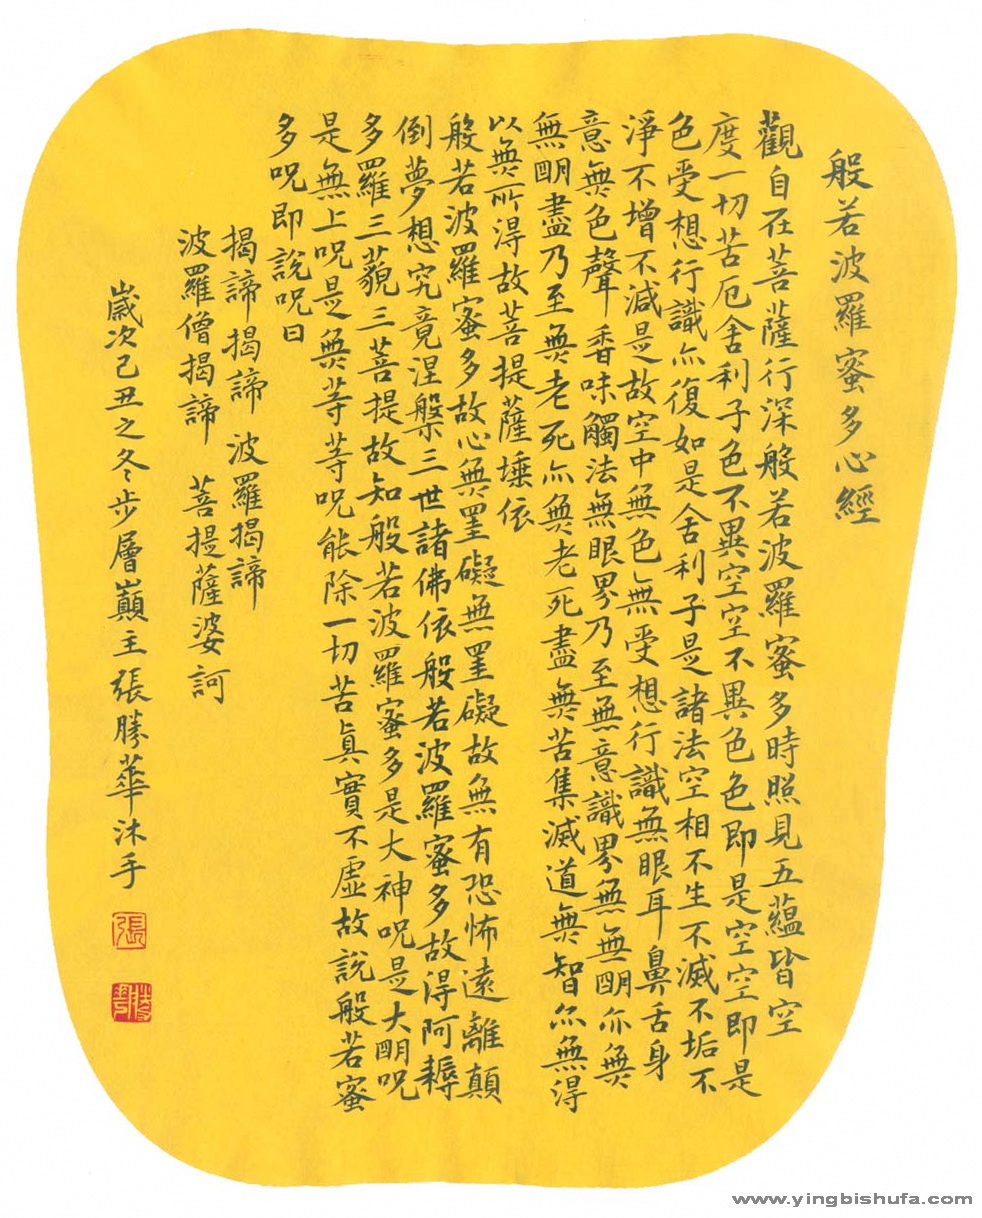 般若波羅蜜多心經
觀自在菩薩行深般若波羅蜜多時照見五蘊皆空
度一切苦厄舍利子色不異空空不異色色即是空空即是
色受想行識亦復如是舍利子是諸法空相不生不滅不垢不
淨不增不減是故空中無色無受想行識無眼耳鼻舌身
意無色聲香味觸法無眼界乃至無意識界無無明亦無
無明盡乃至無老死亦無老死盡無苦集滅道無智亦無得
以無所得故菩提薩埵依
般若波羅蜜多故心無罣礙無罣礙故無有恐怖遠離顛
倒夢想究竟涅槃三世諸佛依般若波羅蜜多故得阿耨
多羅三藐三菩提故知般若波羅蜜多是大神呪是大明呪
是無上呪是無等等呪能除一切苦真實不虛故說般若蜜
多呪即說呪曰
揭諦揭諦 波羅揭諦
波羅僧揭諦 菩提薩婆訶
歲次己丑之冬步層巔主張勝華沐手
張
勝華
www.yingbishufa.com